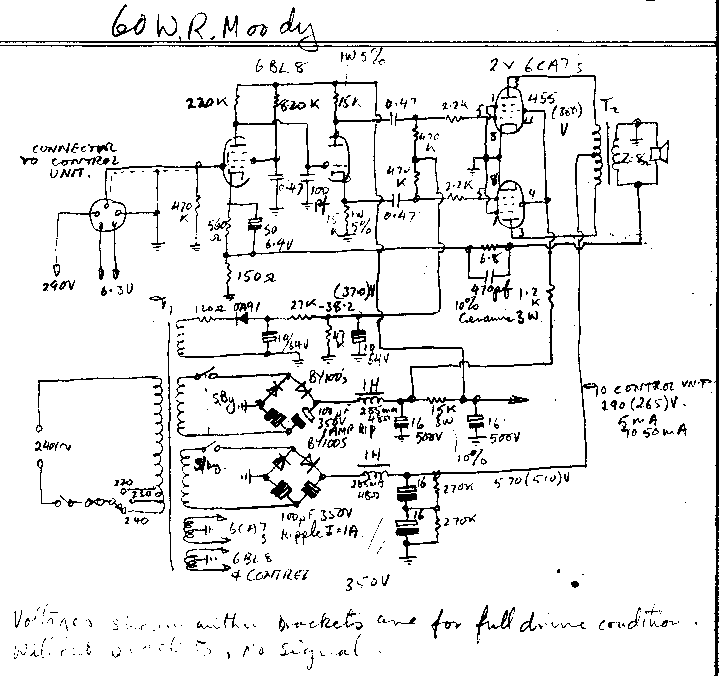 60 W. R. Moody
6BL8
1W 5%
2 x 6CA7s
220K
820K
15K
0.47
2.2K
455
(380)
V
T2
CONNECTOR
TO CONTROL
UNIT.
470
K
470K
560
Ω
50
6.4V
0.47
100
pf
15
K
1W
5%
0.47
470
K
2.2K
8
8
4
2.8Ω
150Ω
290V
6.3V
6.8
470pf
10%
Ceramic
1.2
K
3W.
T1
120Ω
OA91
27K
-38.2
(37.0)V
10/64V
47
K
10
64V
BY100s
S.By
100µF
350V
1AMP RIP
1H
285mA
48Ω
15K
3W
16
500V
16
500V
10%
TO CONTROL UNIT
290 (265)V.
5mA
TO 50mA
240V~
BY100S
S/By.
1H
48Ω
16
16
270K
270K
570 (510)V
220
230
240
6CA7
S
100µF 350V
Ripple I = 1A
6BL8
& CONTROL
350V
Voltages shown within brackets are for full drive condition.
Without brackets, no signal.